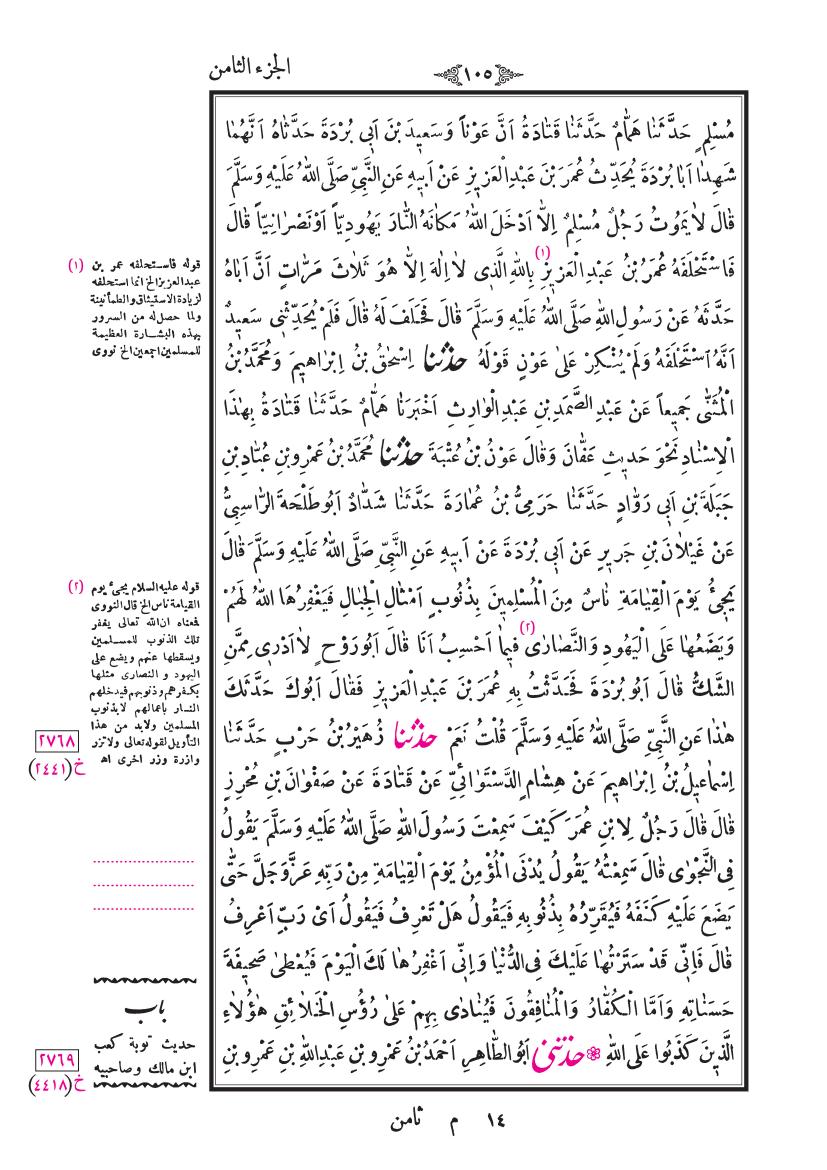 الجزء الثامن
١٠٥
مُسْلِمٍ حَدَّثَنَا هَمَّامٌ حَدَّثَنَا قَتَادَةُ اَنَّ عَوْناً وَسَعِيدَ بْنَ اَبِى بُرْدَةَ حَدَّثَاهُ اَنَّهُمَا
شَهِدَا اَبَا بُرْدَةَ يُحَدِّثُ عُمَرَ بْنَ عَبْدِ الْعَزِيزِ عَنْ اَبِيهِ عَنِ النَّبِىِّ صَلَّى اللهُ عَلَيْهِ وَسَلَّمَ
قَالَ لَا يَمُوتُ رَجُلٌ مُسْلِمٌ اِلَّا اَدْخَلَ اللهُ مَكَانَهُ النَّارَ يَهُودِيّاً اَوْ نَصْرَانِيّاً قَالَ
فَاسْتَحْلَفَهُ عُمَرُ بْنُ عَبْدِ الْعَزِيزِ (١) بِاللهِ الَّذِى لَا اِلٰهَ اِلَّا هُوَ ثَلَاثَ مَرَّاتٍ اَنَّ اَبَاهُ
حَدَّثَهُ عَنْ رَسُولِ اللهِ صَلَّى اللهُ عَلَيْهِ وَسَلَّمَ قَالَ فَحَلَفَ لَهُ قَالَ فَلَمْ يُحَدِّثْنِى سَعِيدٌ
اَنَّهُ اسْتَحْلَفَهُ وَلَمْ يُنْكِرْ عَلَى عَوْنٍ قَوْلَهُ حَدَّثَنَا اِسْحٰقُ بْنُ اِبْرَاهِيمَ وَمُحَمَّدُ بْنُ
الْمُثَنَّى جَمِيعاً عَنْ عَبْدِ الصَّمَدِ بْنِ عَبْدِ الْوَارِثِ اَخْبَرَنَا هَمَّامٌ حَدَّثَنَا قَتَادَةُ بِهٰذَا
الْاِسْنَادِ نَحْوَ حَدِيثِ عَفَّانَ وَقَالَ عَوْنُ بْنُ عُتْبَةَ حَدَّثَنَا مُحَمَّدُ بْنُ عَمْرِو بْنِ عَبَّادِ بْنِ
جَبَلَةَ بْنِ اَبِى رَوَّادٍ حَدَّثَنَا حَرَمِىُّ بْنُ عُمَارَةَ حَدَّثَنَا شَدَّادٌ اَبُو طَلْحَةَ الرَّاسِبِىُّ
عَنْ غَيْلَانَ بْنِ جَرِيرٍ عَنْ اَبِى بُرْدَةَ عَنْ اَبِيهِ عَنِ النَّبِىِّ صَلَّى اللهُ عَلَيْهِ وَسَلَّمَ قَالَ
يَجِىءُ يَوْمَ الْقِيَامَةِ نَاسٌ مِنَ الْمُسْلِمِينَ بِذُنُوبٍ اَمْثَالِ الْجِبَالِ فَيَغْفِرُهَا اللهُ لَهُمْ
وَيَضَعُهَا عَلَى الْيَهُودِ وَالنَّصَارَى (٢) فِيمَا اَحْسِبُ اَنَا قَالَ اَبُو رَوْحٍ لَا اَدْرِى مِمَّنِ
الشَّكُّ قَالَ اَبُو بُرْدَةَ فَحَدَّثْتُ بِهِ عُمَرَ بْنَ عَبْدِ الْعَزِيزِ فَقَالَ اَبُوكَ حَدَّثَكَ
هٰذَا عَنِ النَّبِىِّ صَلَّى اللهُ عَلَيْهِ وَسَلَّمَ قُلْتُ نَعَمْ حَدَّثَنَا زُهَيْرُ بْنُ حَرْبٍ حَدَّثَنَا
اِسْمَاعِيلُ بْنُ اِبْرَاهِيمَ عَنْ هِشَامٍ الدَّسْتَوَائِىِّ عَنْ قَتَادَةَ عَنْ صَفْوَانَ بْنِ مُحْرِزٍ
قَالَ قَالَ رَجُلٌ لِابْنِ عُمَرَ كَيْفَ سَمِعْتَ رَسُولَ اللهِ صَلَّى اللهُ عَلَيْهِ وَسَلَّمَ يَقُولُ
فِى النَّجْوٰى قَالَ سَمِعْتُهُ يَقُولُ يُدْنَى الْمُؤْمِنُ يَوْمَ الْقِيَامَةِ مِنْ رَبِّهِ عَزَّ وَجَلَّ حَتَّى
يَضَعَ عَلَيْهِ كَنَفَهُ فَيُقَرِّرُهُ بِذُنُوبِهِ فَيَقُولُ هَلْ تَعْرِفُ فَيَقُولُ اَىْ رَبِّ اَعْرِفُ
قَالَ فَاِنِّى قَدْ سَتَرْتُهَا عَلَيْكَ فِى الدُّنْيَا وَاِنِّى اَغْفِرُهَا لَكَ الْيَوْمَ فَيُعْطَى صَحِيفَةَ
حَسَنَاتِهِ وَاَمَّا الْكُفَّارُ وَالْمُنَافِقُونَ فَيُنَادَى بِهِمْ عَلَى رُؤُسِ الْخَلَائِقِ هٰؤُلَاءِ
الَّذِينَ كَذَبُوا عَلَى اللهِ حَدَّثَنِى اَبُو الطَّاهِرِ اَحْمَدُ بْنُ عَمْرِو بْنِ عَبْدِ اللهِ بْنِ عَمْرِو بْنِ
(١) قوله فاستحلفه عمر بن
عبد العزيز الخ انما استحلفه
لزيادة الاستيثاق والطمأنينة
ولما حصل له من السرور
بهذه البشارة العظيمة
للمسلمين اجمعين الخ نووى
(٢) قوله عليه السلام يجئ يوم
القيامة ناس الخ قال النووى
فمعناه ان الله تعالى يغفر
تلك الذنوب للمسلمين
ويسقطها عنهم ويضع على
اليهود و النصارى مثلها
بكفرهم وذنوبهم فيدخلهم
النار باعمالهم لا بذنوب
المسلمين ولابد من هذا
التأويل لقوله تعالى ولا تزر
وازرة وزر اخرى اه
٢٧٦٨
خ (٢٤٤١)
باب
حديث توبة كعب
ابن مالك وصاحبيه
٢٧٦٩
خ (٤٤١٨)
١٤ م ثامن